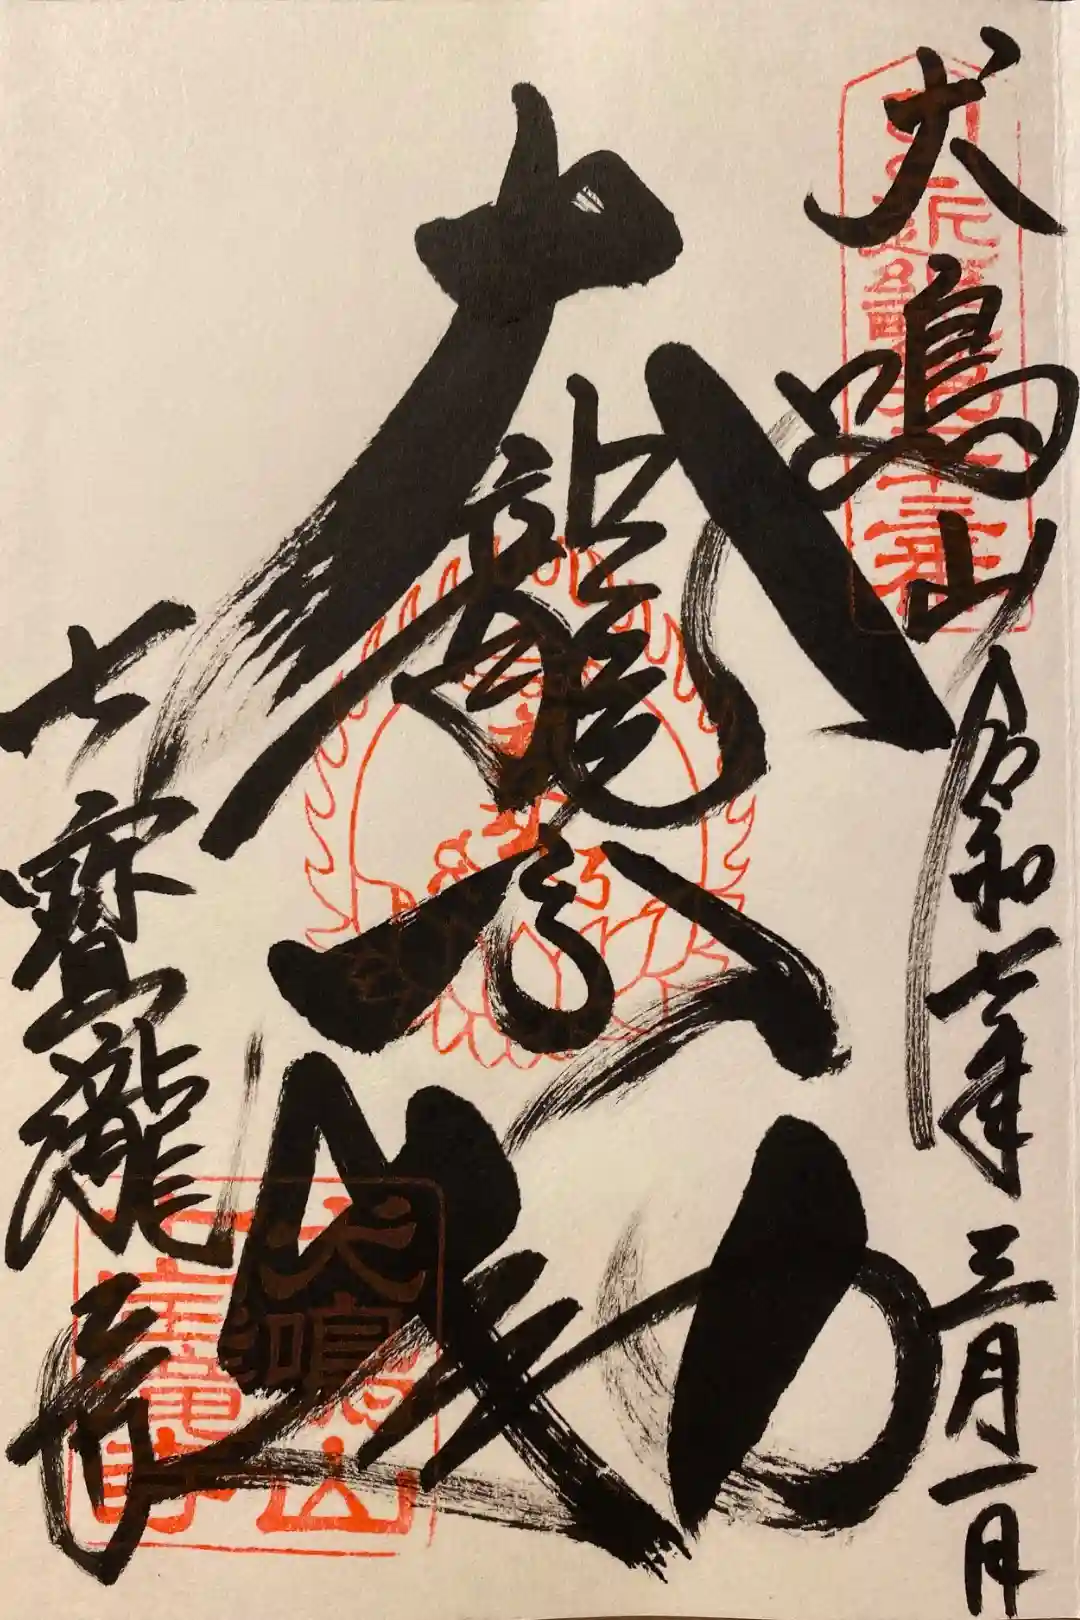 犬鳴山 令和七年三月一日
大龍不動
七寶瀧寺
犬鳴山
七宝瀧寺